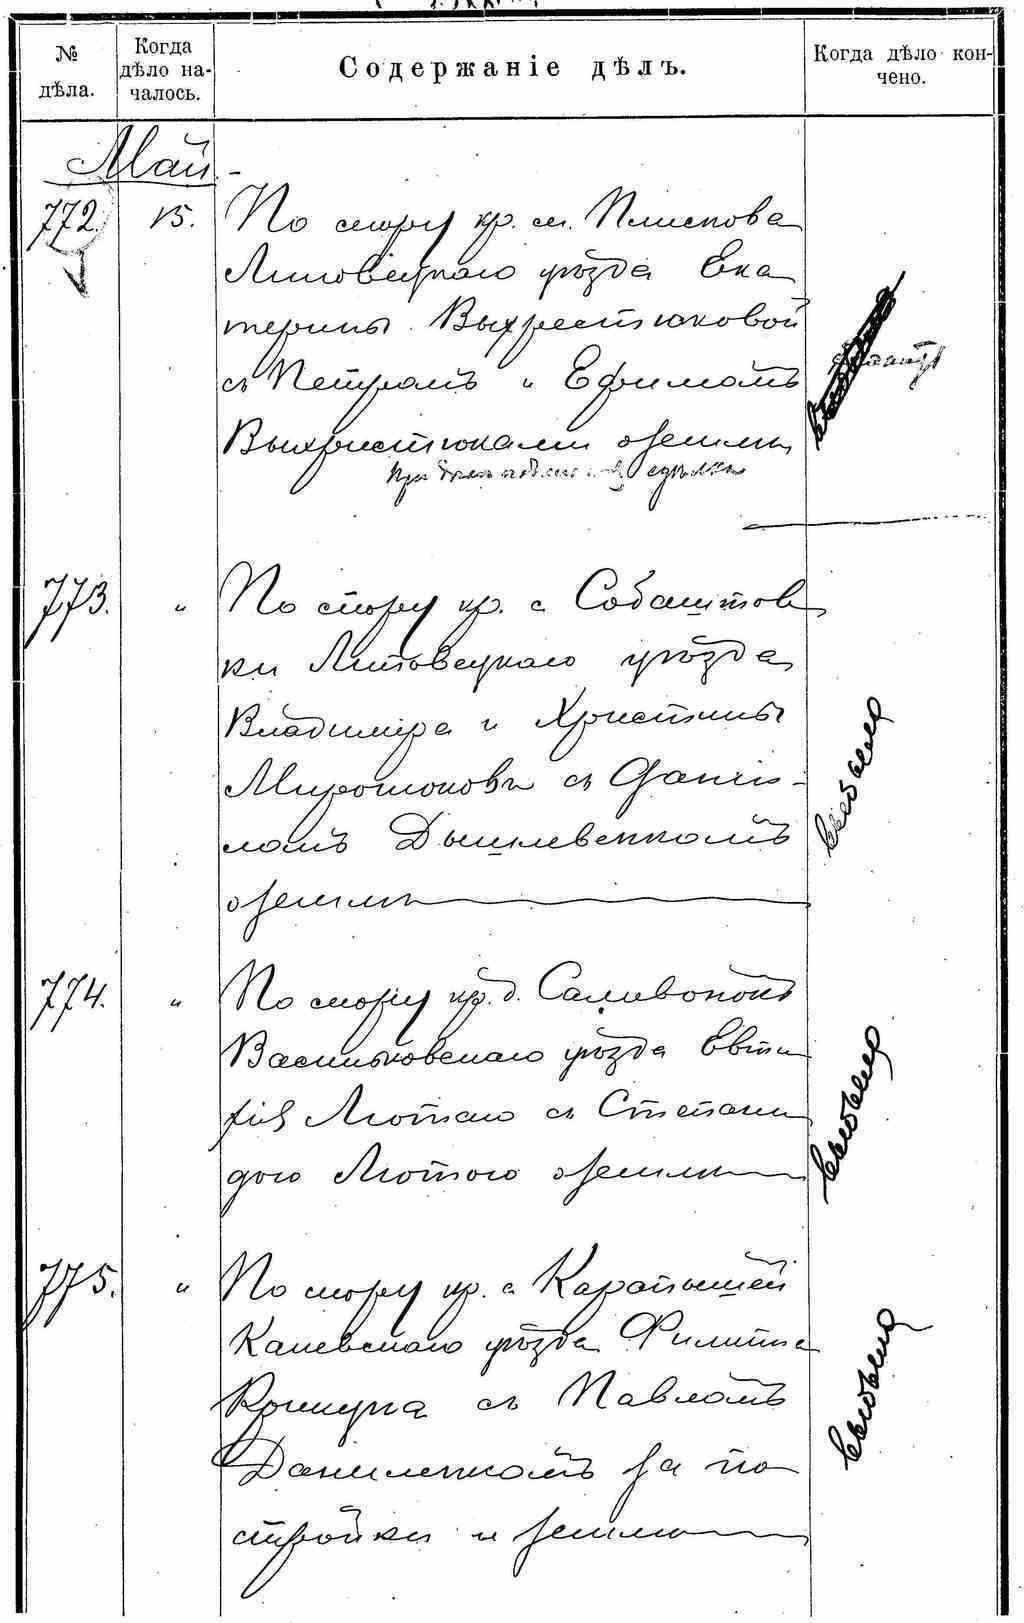 № дѣла.
Когда дѣло началось.
Содержаніе дѣлъ.
Когда дѣло кончено.
Май
772. 15. По спору кр. м. Плискова
Липовецкаго уѣзда Ека
терины Выхрестюковой
съ Петромъ и Ефимомъ
Выхрестюками о земли
сдѣлки
773. " По спору кр. с Собаштов
ки Липовецкаго уѣзда
Владиміра и Христины
съ Дани-
ломъ
о земли
774. " По спору кр. д. Саливонокъ
Васильковскаго уѣзда Евти
фія Лютаго съ Степани
дою Лютою о земли
775. " По спору кр. с Карапышей
Каневскаго уѣзда Филиппа
съ Павломъ
Даниленкомъ за по
стройки и землю